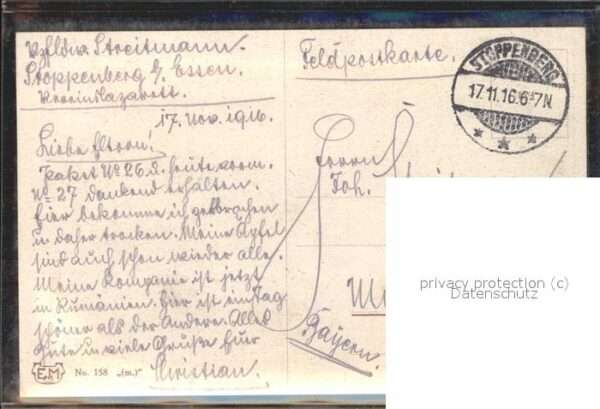 Vzfldw. Streitmann.
Stoppenberg b/ Essen.
Vereinslazarett.
17. Nov. 1916.
Liebe Eltern!
Paket No 26 u. heute vorm.
No 27 dankend erhalten.
Hier bekomme ich gebrochen
u. daher trocken. Meine Äpfel
sind auch schon wieder alle.
Meine Kompanie ist jetzt
in Rumänien. Hier ist ein Tag
schöner als der Andere. Alles
Gute u. viele Grüße Euer
Christian.
EM No. 158 „(m.)“
Feldpostkarte.
STOPPENBERG
17.11.16.6-7N.
Herrn
Joh.
Bayern.
privacy protection (c)
Datenschutz